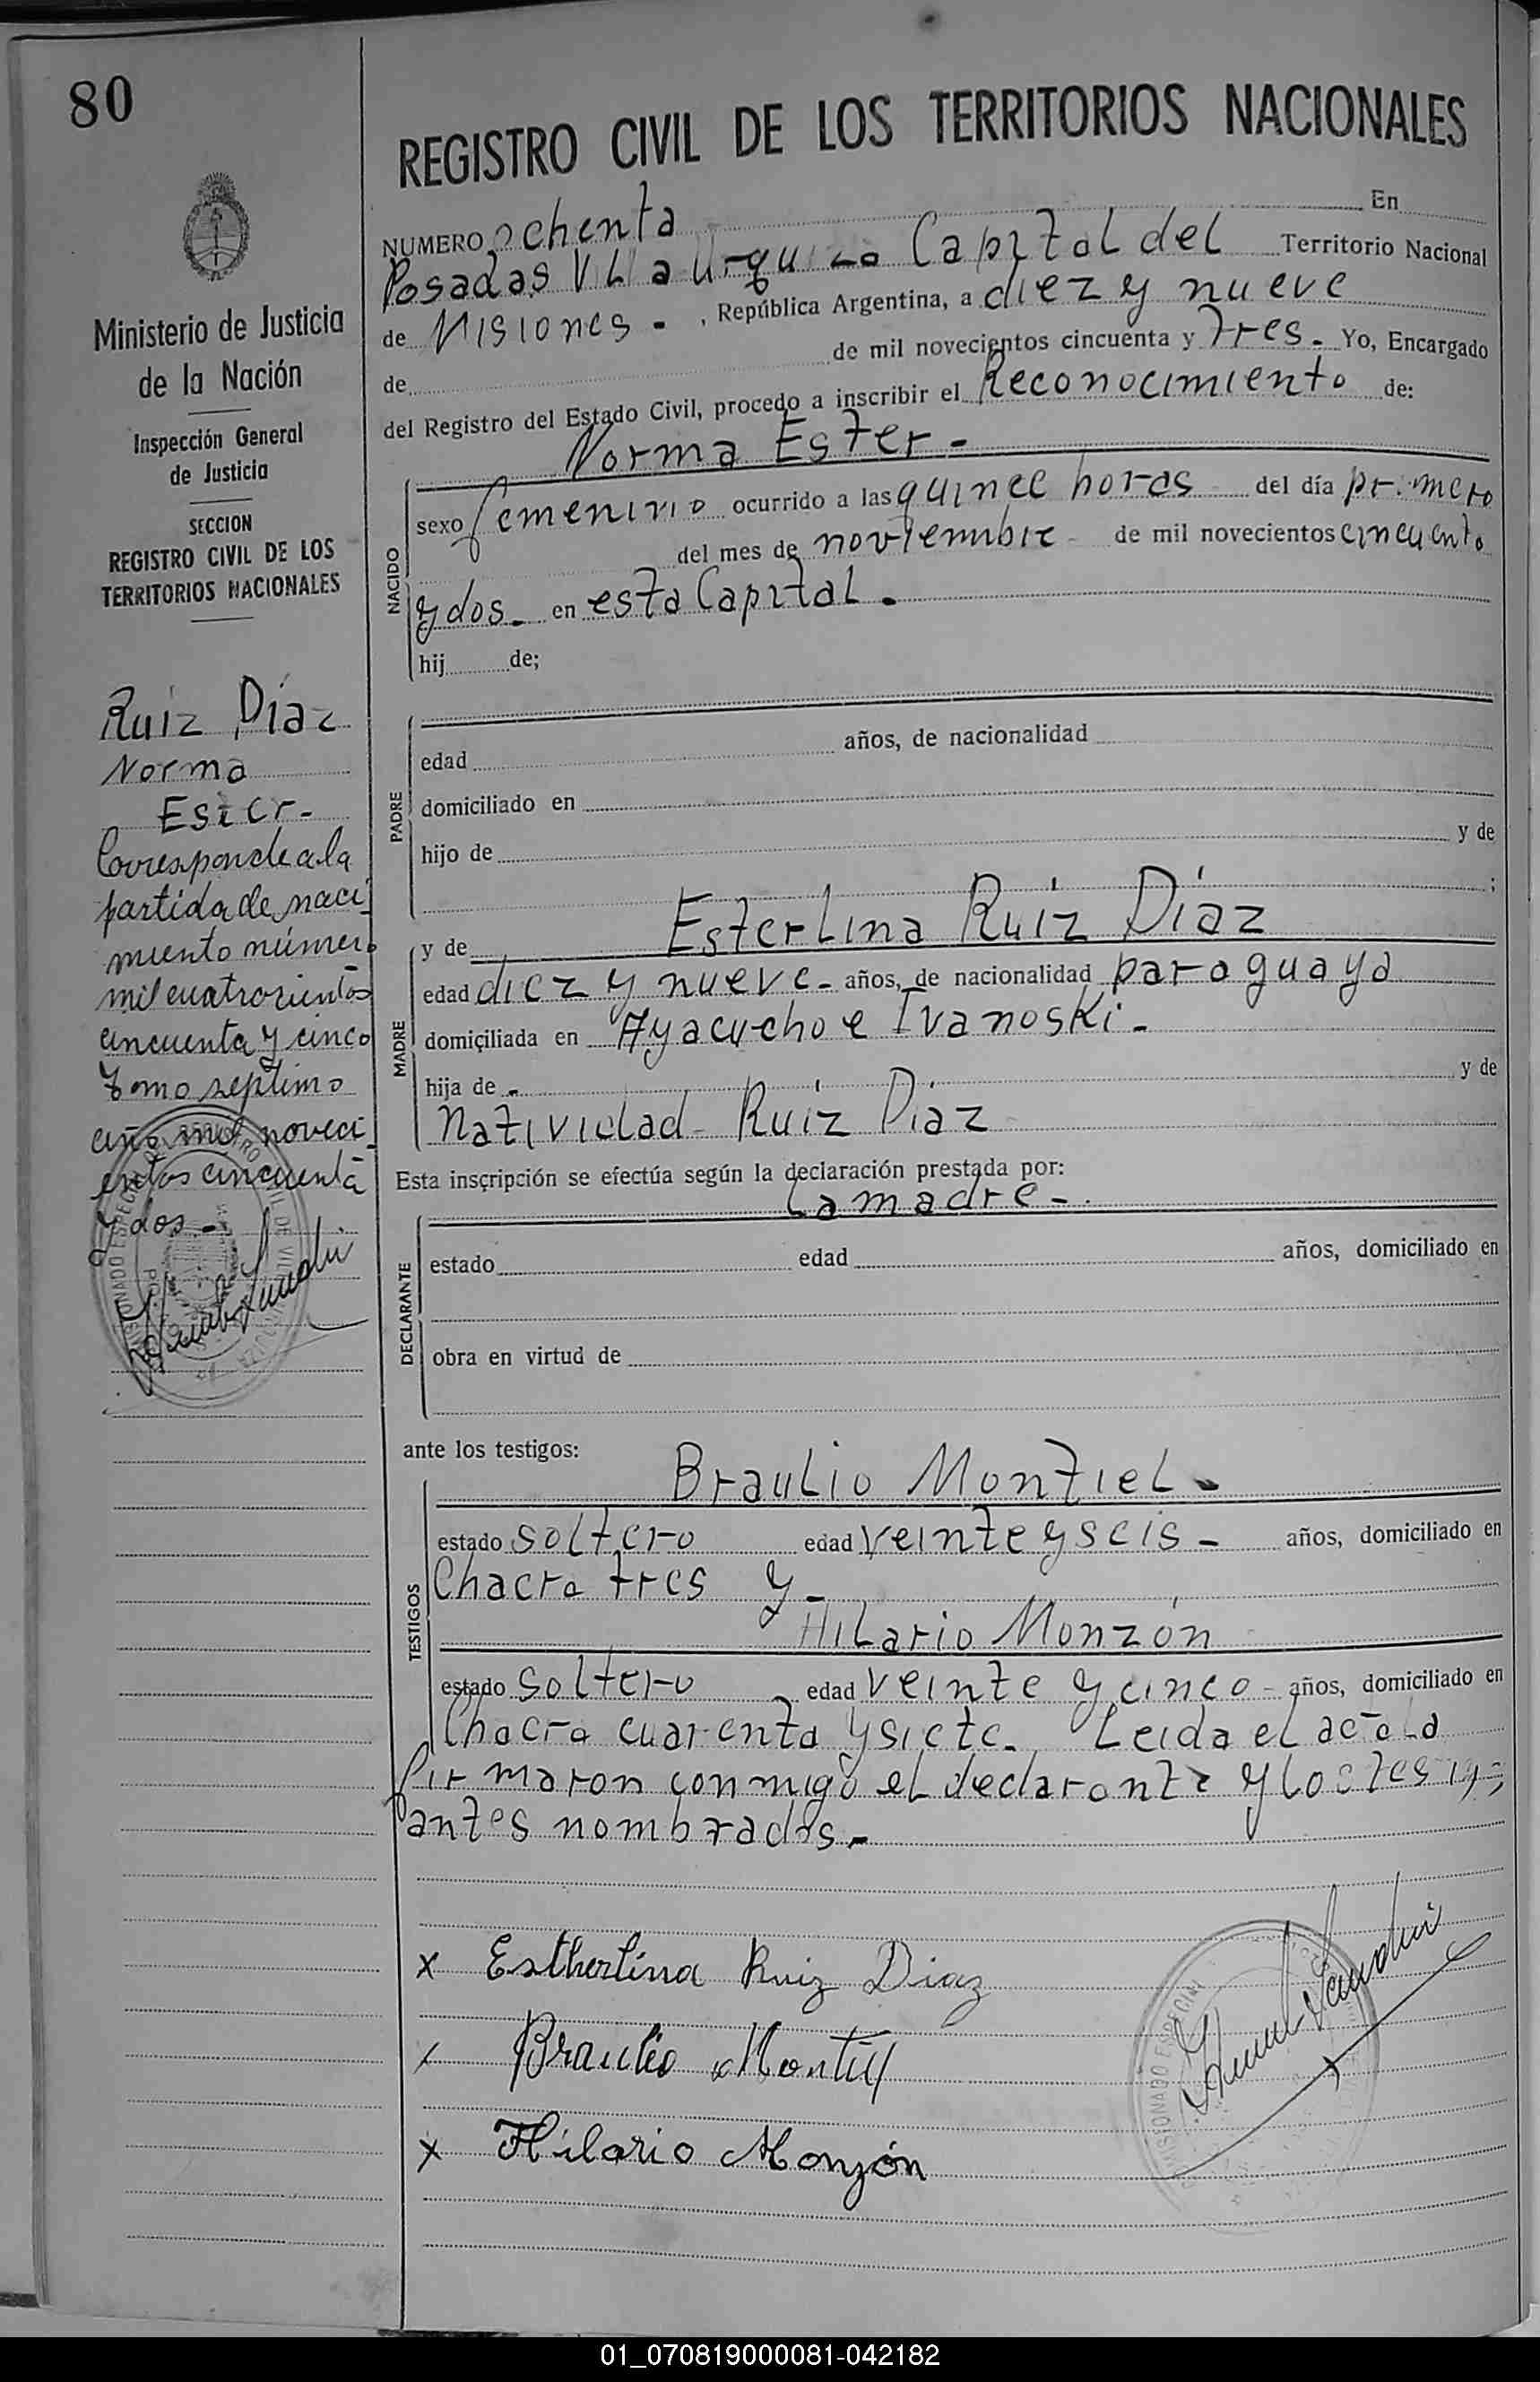 80
REGISTRO CIVIL DE LOS TERRITORIOS NACIONALES
NUMERO ochenta En
Posadas Villa Urquiza Capital del Territorio Nacional
de Misiones - , República Argentina, a diez y nueve
de de mil novecientos cincuenta y tres - Yo, Encargado
del Registro del Estado Civil, procedo a inscribir el Reconocimiento de:
Norma Ester -
NACIDO
sexo femenino ocurrido a las quince horas del día primero
del mes de noviembre - de mil novecientos cincuenta
y dos - en esta Capital .
hij de;
PADRE
edad años, de nacionalidad
domiciliado en
hijo de y de
;
MADRE
y de Esterlina Ruíz Díaz
edad diez y nueve - años, de nacionalidad paraguaya
domiciliada en Ayacucho e Ivanoski -
hija de - y de
Natividad Ruíz Díaz
Esta inscripción se efectúa según la declaración prestada por:
La madre -
DECLARANTE
estado edad años, domiciliado en
obra en virtud de
ante los testigos:
TESTIGOS
Braulio Montiel -
estado soltero edad veinte y seis - años, domiciliado en
Chacra tres y -
Hilario Monzón
estado soltero edad veinte y cinco - años, domiciliado en
Chacra cuarenta y siete. Leida el acta la
firmaron conmigo el declarante y los
antes nombrados -
x Estherlina Ruiz Diaz
x Braulio Montiel
x Hilario Monzón
Ministerio de Justicia
de la Nación
Inspección General
de Justicia
SECCION
REGISTRO CIVIL DE LOS
TERRITORIOS NACIONALES
Ruiz Díaz
Norma
Ester -
Corresponde a la
partida de naci_
miento número
mil cuatrocientos
cincuenta y cinco
tomo septimo
año mil noveci_
entos cincuenta
y dos -
01_070819000081-042182